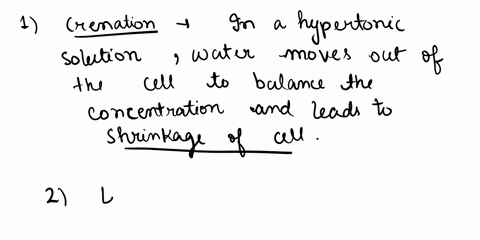 1) Crenation → In a hypertonic
solution, water moves out of
the cell to balance the
concentration and leads to
shrinkage of cell.
2) L